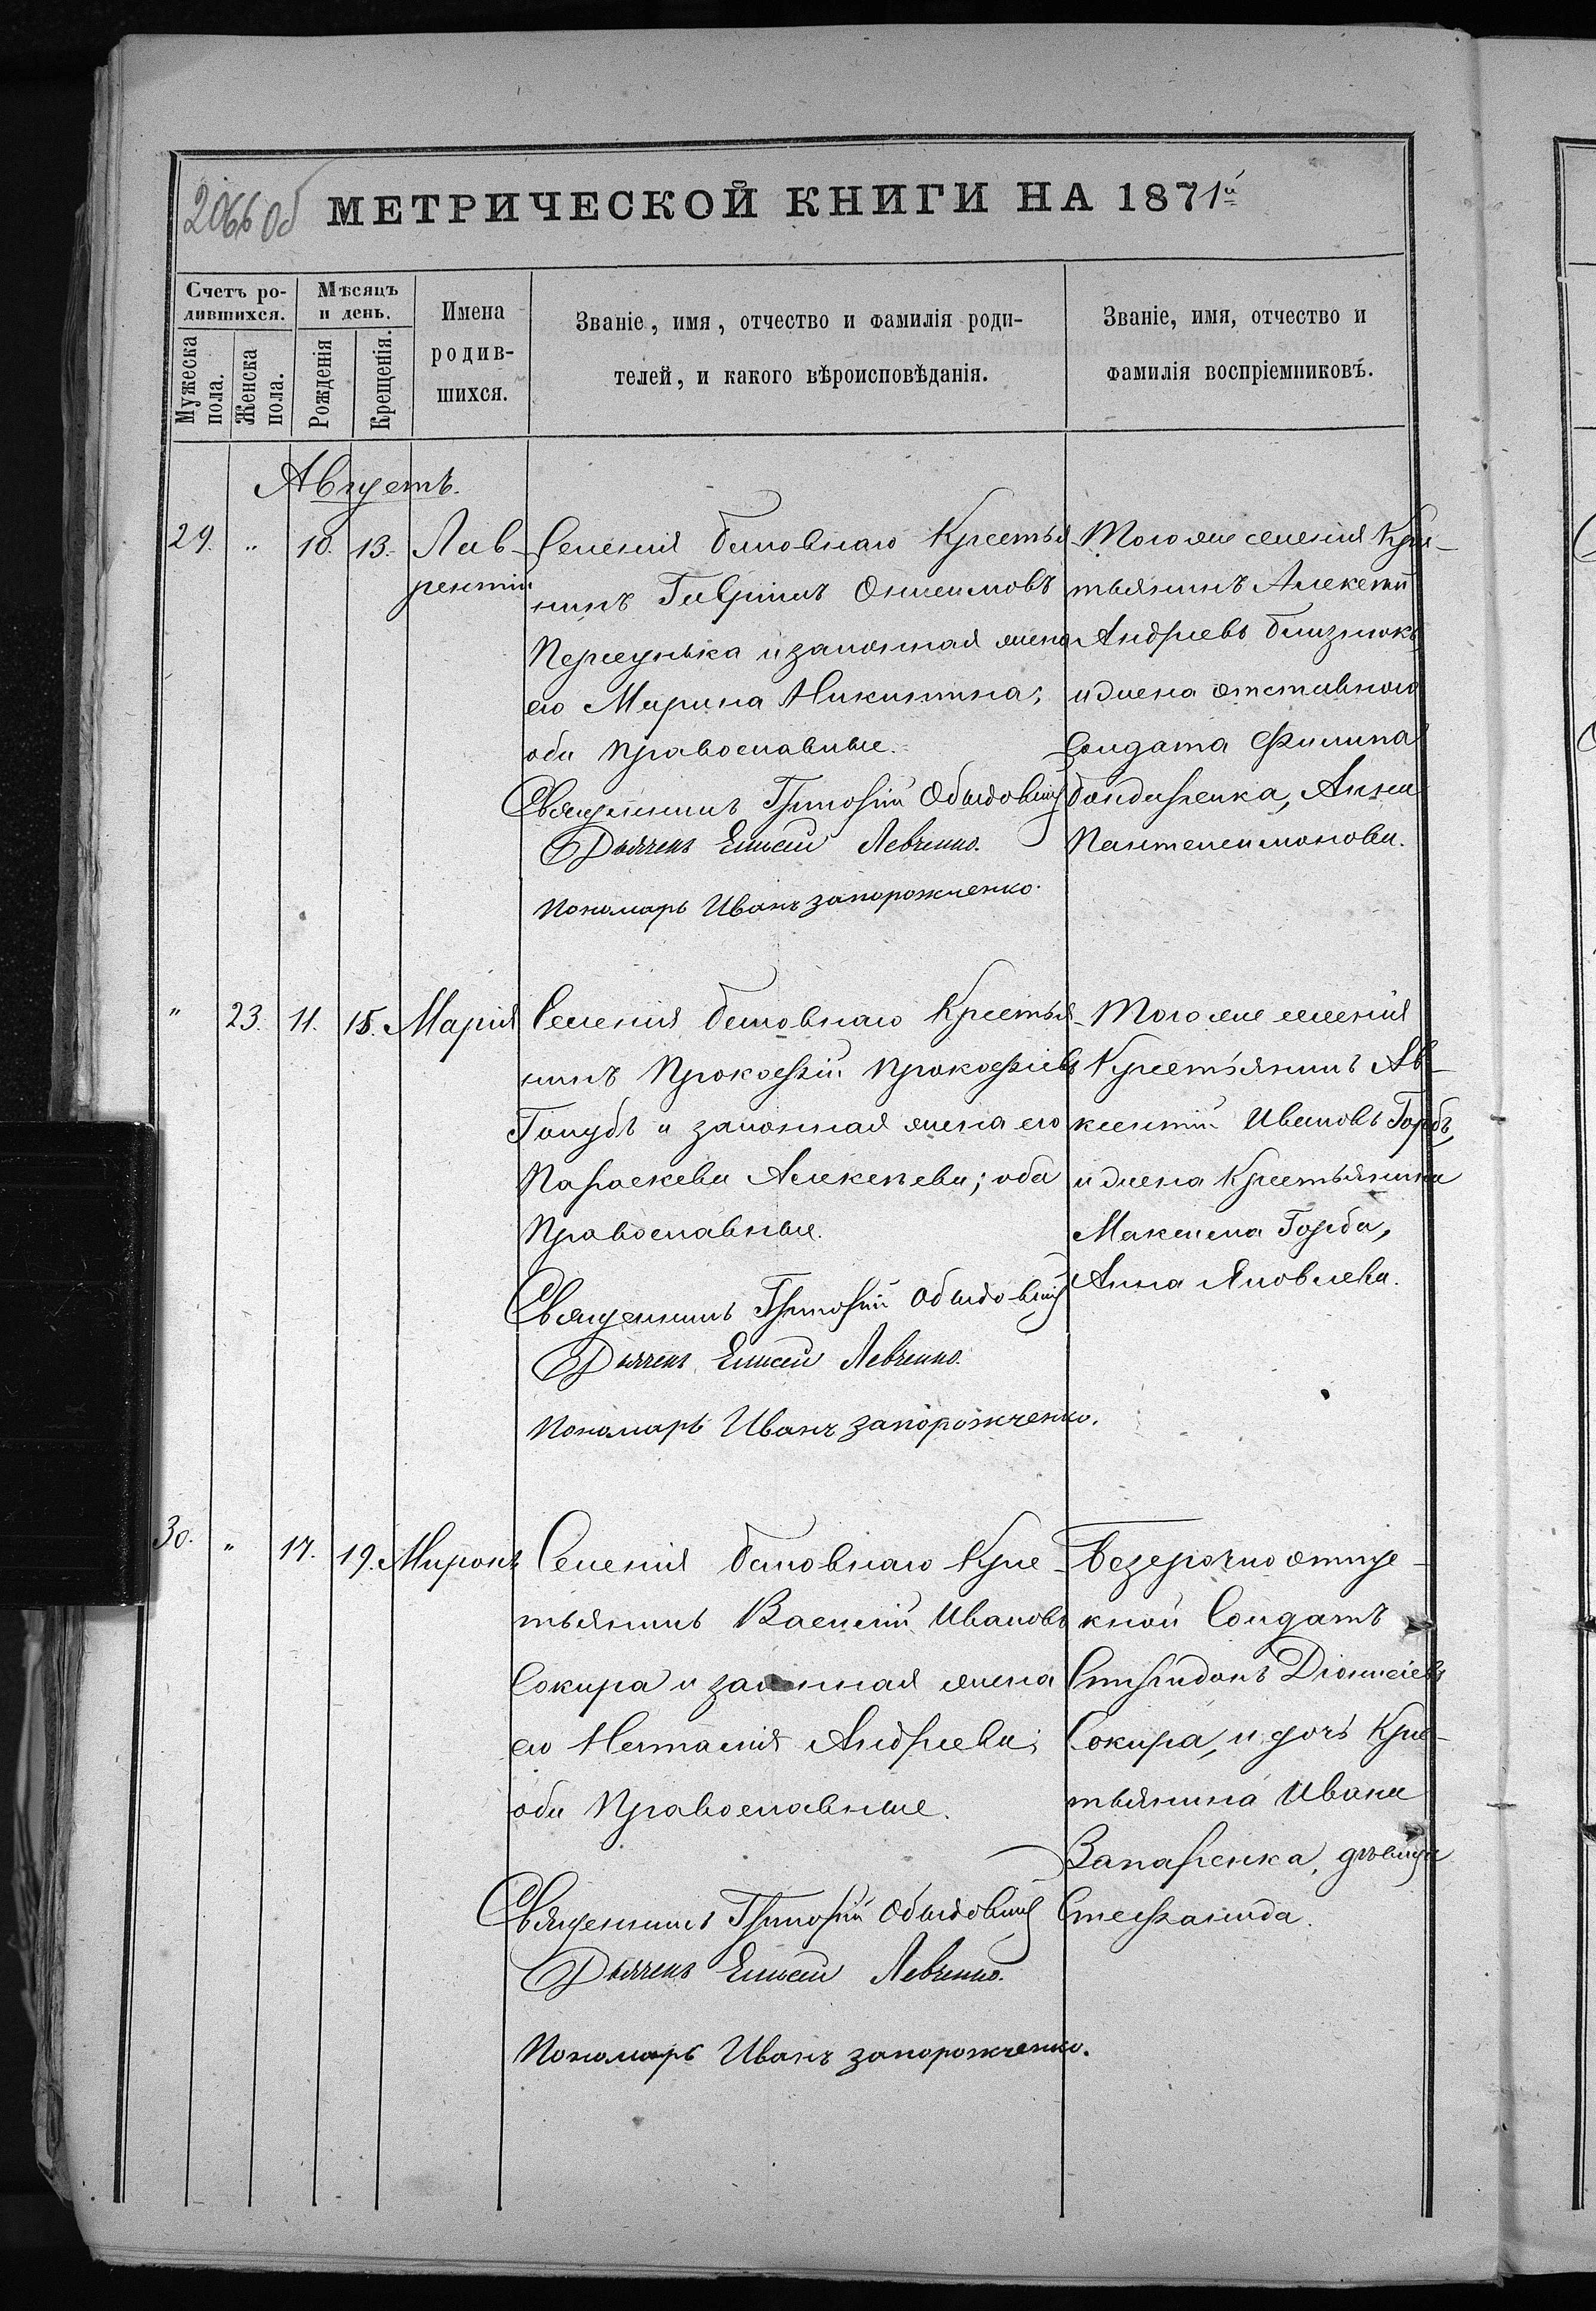 2066 об
МЕТРИЧЕСКОЙ КНИГИ НА 1871й
Счетъ ро-
дившихся.
Мужеска
пола.
Женска
пола.
Мѣсяцъ
и день.
Рожденія
Крещенія.
Имена
родив-
шихся.
Званіе, имя, отчество и фамилія роди-
телей, и какого вѣроисповѣданія.
Званіе, имя, отчество и
фамилія воспріемниковъ.
Августъ.
29. " 10. 13. Лав-
рентій
Селенія Беловнаго Крестья-
нинъ Гавріилъ Онисимовъ
и законная жена
его Марина Никитина;
оба православные.
Священникъ Григорій
Дьячекъ Елисей Левченко.
Пономарь Иванъ Запорожченко.
Того же селенія Крес-
тьянинъ Алексѣй
Андреевъ Близнюкъ
и жена отставного
Солдата Филипа
Бондаренка, Анна
Пантелеимонова.
" 23. 11. 15. Марія
Селенія Беловнаго Крестья-
нинъ Прокофій Прокофіевъ
Голубъ и законная жена его
Параскева Алексѣева; оба
Православные.
Священникъ Григорій
Дьячекъ Елисей Левченко.
Пономарь Иванъ Запорожченко.
Того же селенія
Крестьянинъ Ав-
ксентій Ивановъ Горбъ,
и жена Крестьянина
Максима Горба,
Анна Яковлева.
30. " 17. 19. Миронъ
Селенія Беловнаго Крес-
тьянинъ Василій Ивановъ
Сокира и законная жена
его Наталія Андреева;
оба Православные.
Священникъ Григорій
Дьячекъ Елисей Левченко.
Пономарь Иванъ Запорожченко.
Безсрочно отпус-
кной Солдатъ
Спиридонъ Діонисіевъ
Сокира, и дочь Крес-
тьянина Ивана
Запаренка, дѣвица
Стефанида.